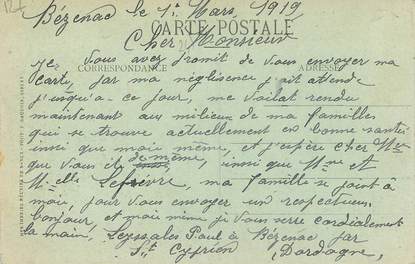 Bézenac le 1er Mars 1919
CARTE POSTALE
Cher Monsieur
CORRESPONDANCE ADRESSE
Je vous avez dromit de vous envoyer ma
Carte, par ma négliscence j'ait attendu
jusqu'a ce jour, me voilat rendu
maintenant aux milieu de ma familles
qui se trouve actuellement en bonne santé
insi que moie même, et j'espére cher Mr
que vous it de même, insi que Mme et
Melle Lefeivre, ma famille se joint à
moie, pour vous envoyer un respectueux
bonjour, et moie même je vous serre cordialement
la main, Leyssales Paul à Bézenac par
St Cyprien Dordogne,